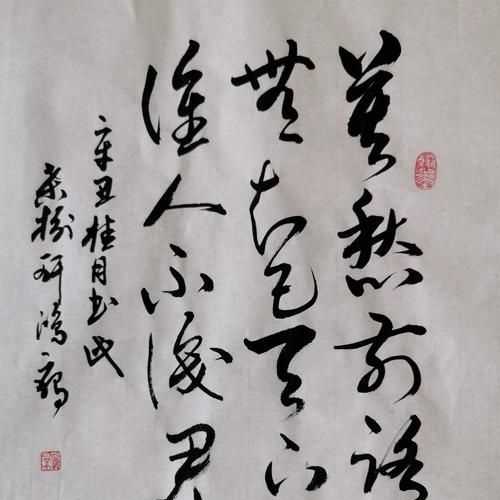 莫愁前路
無知己天下
誰人不識君
辛丑桂月书
鸿